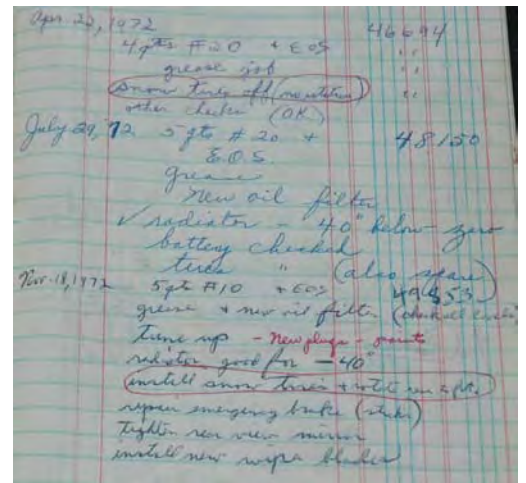 Apr. 22, 1972 46694
4 qts #20 + EOS "
grease job "
snow tires off (no rotation) "
other checks (OK)
July 29, 72 5 qts # 20 + 48150
E.O.S.
grease
New oil filter
✓ radiator - 40° below zero
battery checked
tires " (also spare)
Nov. 18, 1972 5 qts #10 + EOS 49453
grease + new oil filter
tune up - New plugs - points
radiator good for - 40°
install snow tires + rotate
repair emergency brake
tighten rear view mirror
install new wiper blades